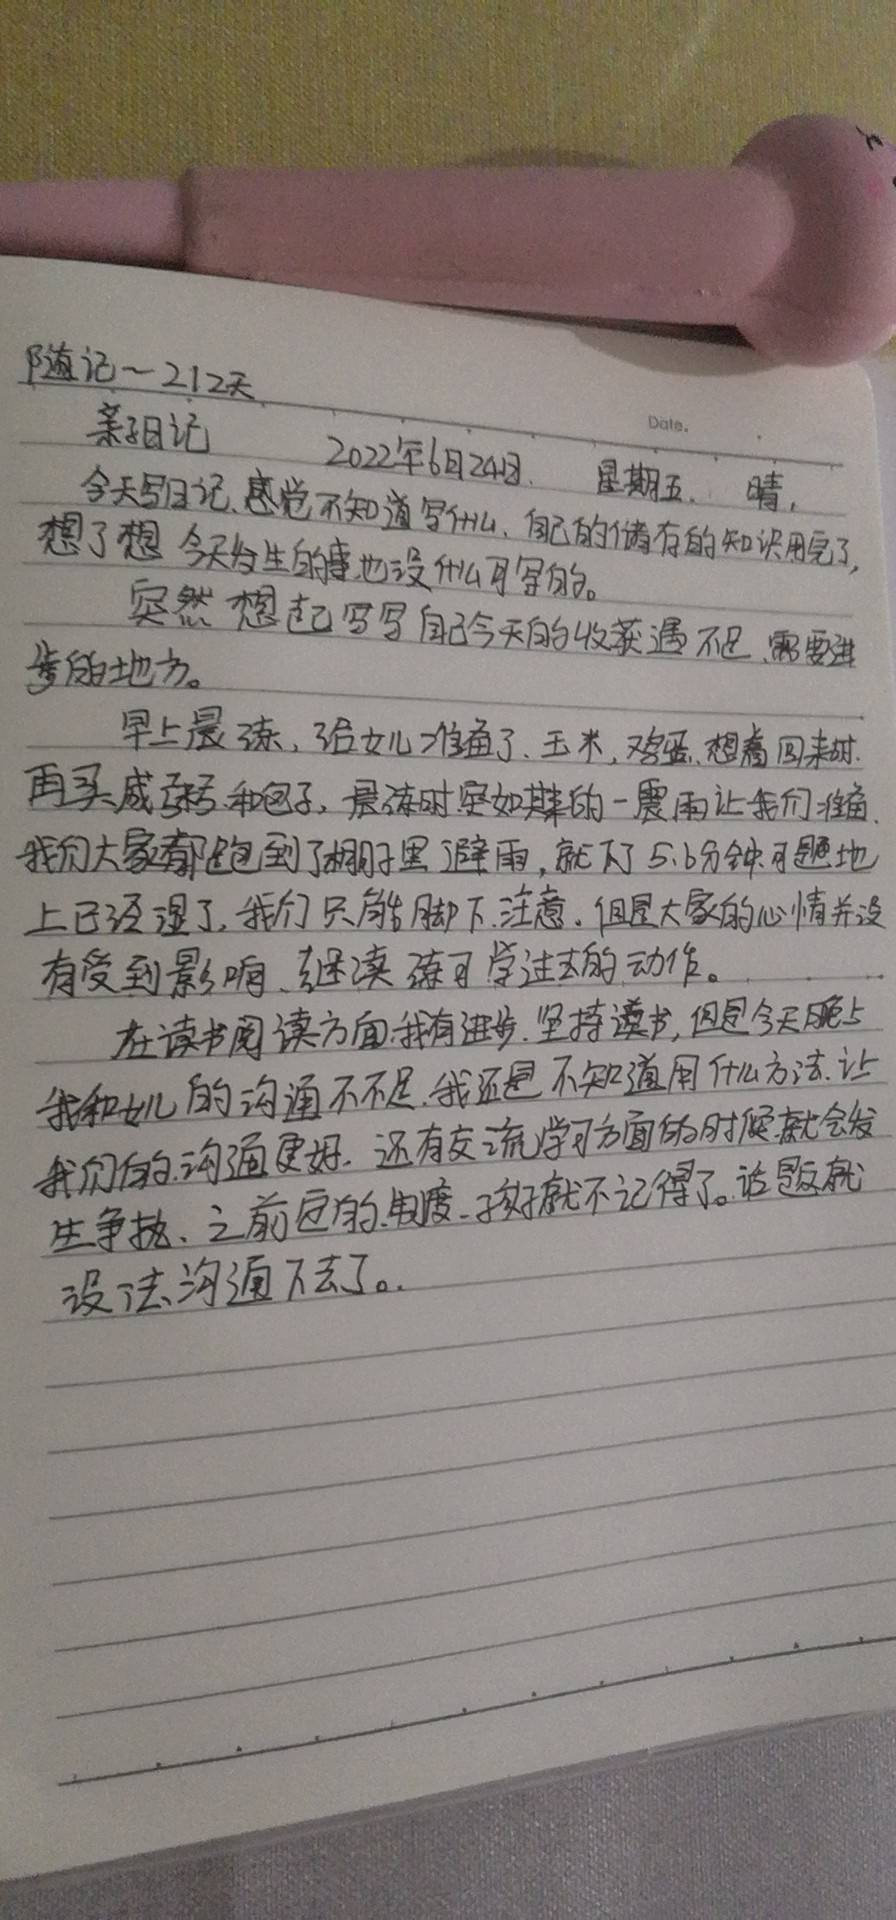 随记~212天
Date.
亲子日记 2022年6月24日. 星期五. 晴,
今天写日记、感觉不知道写什么、自己的储存的知识用完了,
想了想 今天发生的事也没什么可写的。
突然想起写写自己今天的收获遇不足、需要进
步的地方。
早上晨练, 给女儿准备了、玉米, 鸡蛋、想着回来时.
再买咸粥和包子, 晨练时突如其来的一震雨让我们准备.
我们大家都跑到了棚子里避雨, 就下了5.6分钟可题地
上已经湿了, 我们只能脚下注意. 但是大家的心情并没
有受到影响、继续练习学过去的动作。
在读书阅读方面我有进步. 坚持读书, 但是今天晚上
我和女儿的沟通不不足. 我还是不知道用什么方法. 让
我们的沟通更好. 还有交流学习方面的时候就会发
生争执、之前定的制度、孩子就不记得了。话题就
没法沟通下去了。